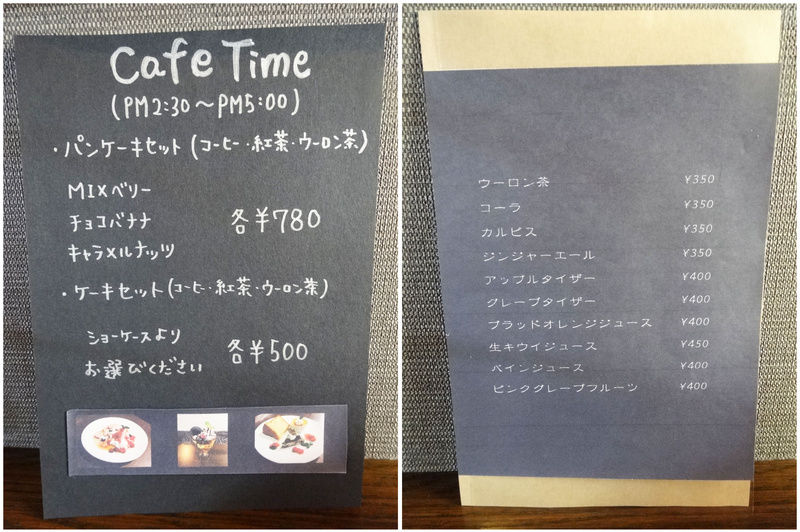 Cafe Time
(PM2:30～PM5:00)
・パンケーキセット(コーヒー・紅茶・ウーロン茶)
MIXベリー
チョコバナナ
キャラメルナッツ
各¥780
・ケーキセット(コーヒー・紅茶・ウーロン茶)
ショーケースより
お選びください
各¥500
ウーロン茶 ¥350
コーラ ¥350
カルピス ¥350
ジンジャーエール ¥350
アップルタイザー ¥400
グレープタイザー ¥400
ブラッドオレンジジュース ¥400
生キウイジュース ¥450
パインジュース ¥400
ピンクグレープフルーツ ¥400